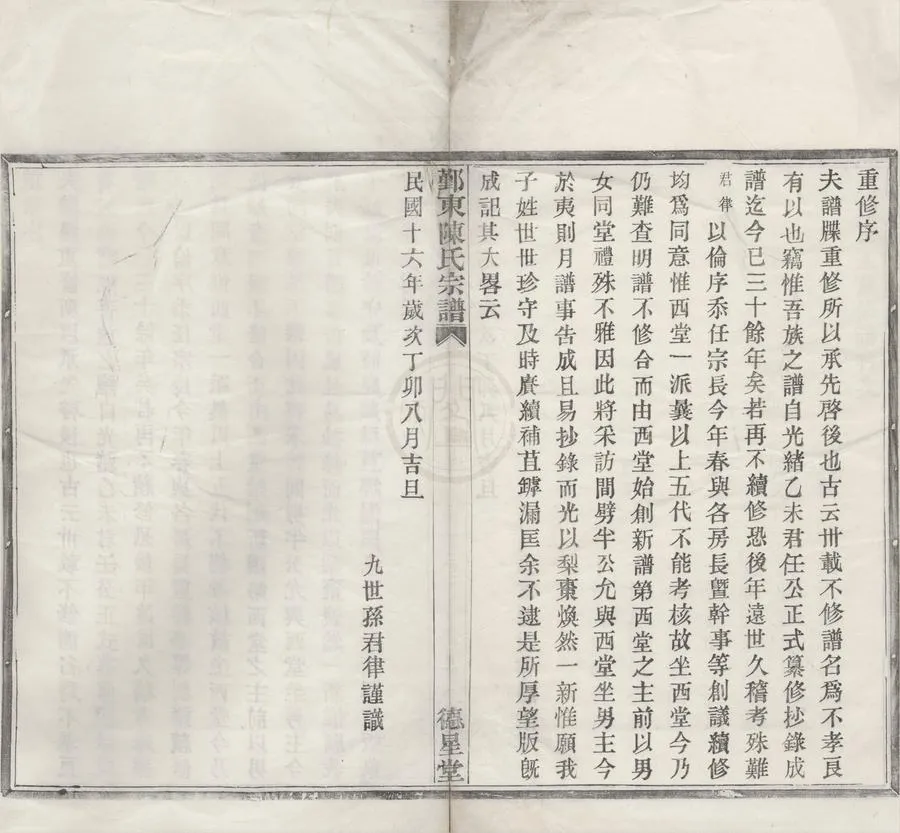 重修序
夫譜牒重修所以承先啓後也古云卅載不修譜名爲不孝良
有以也竊惟吾族之譜自光緒乙未君任公正式纂修抄錄成
譜迄今已三十餘年矣若再不續修恐後年遠世久稽考殊難
君律以倫序忝任宗長今年春與各房長暨幹事等創議續修
均爲同意惟西堂一派曩以上五代不能考核故坐西堂今乃
仍難查明譜不修合而由西堂始創新譜第西堂之主前以男
女同堂禮殊不雅因此將采訪間劈半公允與西堂坐男主今
於夷則月譜事告成且易抄錄而光以梨棗煥然一新惟願我
子姓世世珍守及時賡續補苴罅漏匡余不逮是所厚望版旣
成記其大畧云
鄞東陳氏宗譜
德星堂
民國十六年歲次丁卯八月吉旦
九世孫君律謹識